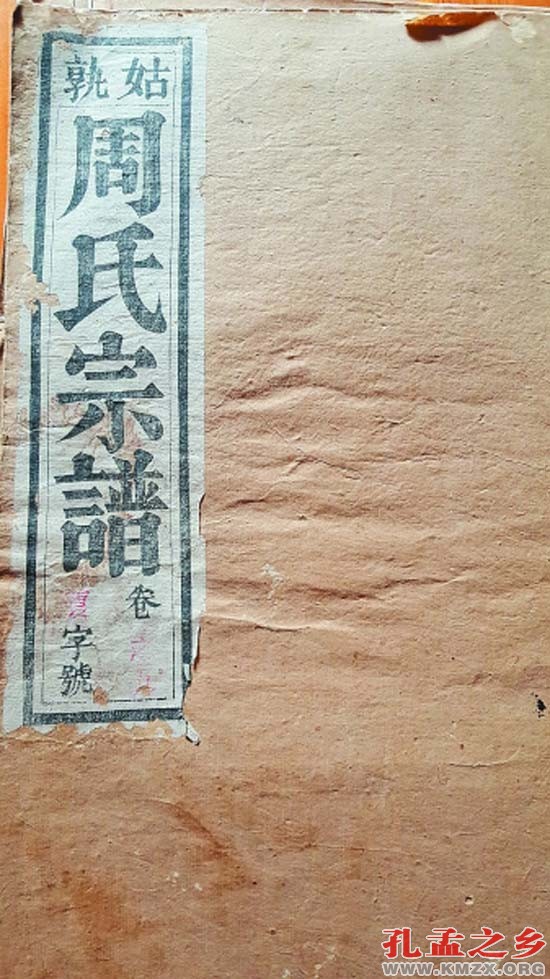 姑孰
周氏宗譜
卷
字號
孔孟之乡
WWW.KMZX.ORG